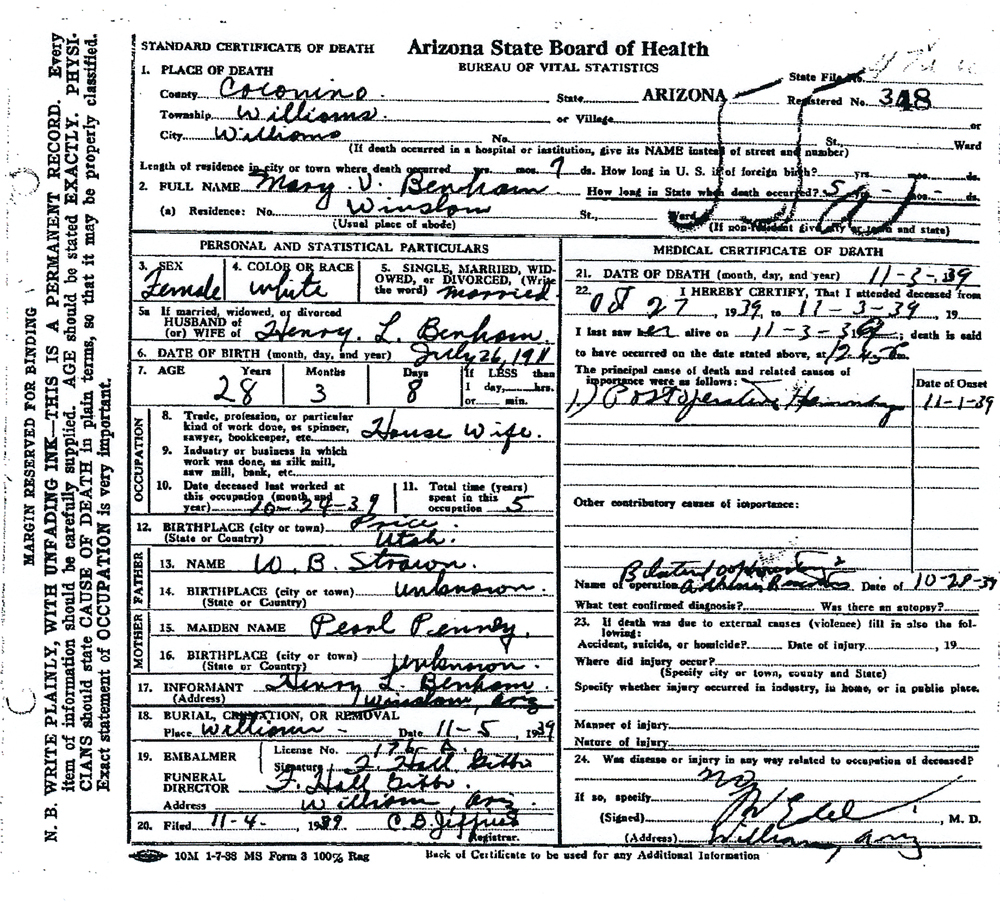 MARGIN RESERVED FOR BINDING
N. B. WRITE PLAINLY, WITH UNFADING INK—THIS IS A PERMANENT RECORD. Every
item of information should be carefully supplied. AGE should be stated EXACTLY. PHYSI-
CIANS should state CAUSE OF DEATH in plain terms, so that it may be properly classified.
Exact statement of OCCUPATION is very important.
STANDARD CERTIFICATE OF DEATH
Arizona State Board of Health
BUREAU OF VITAL STATISTICS
State File No.
1. PLACE OF DEATH
County Coconino. State ARIZONA Registered No. 348
Township Williams. or Village or
City Williams No. St. Ward
(If death occurred in a hospital or institution, give its NAME instead of street and number)
Length of residence in city or town where death occurred yrs. mos. 7 ds. How long in U. S. if of foreign birth? yrs. mos. ds.
2. FULL NAME Mary V. Benham How long in State when death occurred? 5 yrs. - mos. - ds.
(a) Residence: No. Winslow St., Ward
(Usual place of abode) (If non-resident give city or town and state)
PERSONAL AND STATISTICAL PARTICULARS
3. SEX Female
4. COLOR OR RACE White
5. SINGLE, MARRIED, WID-
OWED, or DIVORCED, (Write
the word) Married
5a If married, widowed, or divorced
HUSBAND of
(or) WIFE of Henry L. Benham
6. DATE OF BIRTH (month, day, and year) July 26, 1911
7. AGE Years Months Days If LESS than
28 3 8 1 day, hrs.
or min.
OCCUPATION
8. Trade, profession, or particular
kind of work done, as spinner,
sawyer, bookkeeper, etc. House Wife.
9. Industry or business in which
work was done, as silk mill,
saw mill, bank, etc.
10. Date deceased last worked at
this occupation (month and
year) 10-24-39
11. Total time (years)
spent in this
occupation 5
12. BIRTHPLACE (city or town) Price.
(State or Country) Utah.
FATHER
13. NAME W. B. Strawn.
14. BIRTHPLACE (city or town) Unknown.
(State or Country)
MOTHER
15. MAIDEN NAME Pearl Penney.
16. BIRTHPLACE (city or town) Unknown.
(State or Country)
17. INFORMANT Henry L. Benham
(Address) Winslow, Ariz
18. BURIAL, CREMATION, OR REMOVAL
Place Williams - Date 11-5, 1939
19. EMBALMER License No. 176 A.
Signature F. Hall Gibbs
FUNERAL
DIRECTOR F. Hall Gibbs.
Address Williams, Ariz.
20. Filed 11-4, 1939 C. B. Jeffries
Registrar.
MEDICAL CERTIFICATE OF DEATH
21. DATE OF DEATH (month, day, and year) 11-3-39
22. I HEREBY CERTIFY, That I attended deceased from
Oct 27, 1939, to 11-3-39, 19
I last saw her alive on 11-3-39, death is said
to have occurred on the date stated above, at 12:45
The principal cause of death and related causes of
importance were as follows: Date of Onset
1.) Postoperative 11-1-39
Other contributory causes of importance:
Bilateral
Name of operation Date of 10-28-39
What test confirmed diagnosis? Was there an autopsy?
23. If death was due to external causes (violence) fill in also the fol-
lowing:
Accident, suicide, or homicide? Date of injury, 19
Where did injury occur?
(Specify city or town, county and State)
Specify whether injury occurred in industry, in home, or in public place.
Manner of injury
Nature of injury
24. Was disease or injury in any way related to occupation of deceased?
no
If so, specify
(Signed) M. D.
(Address) Williams, Ariz
10M 1-7-38 MS Form 3 100% Rag
Back of Certificate to be used for any Additional Information